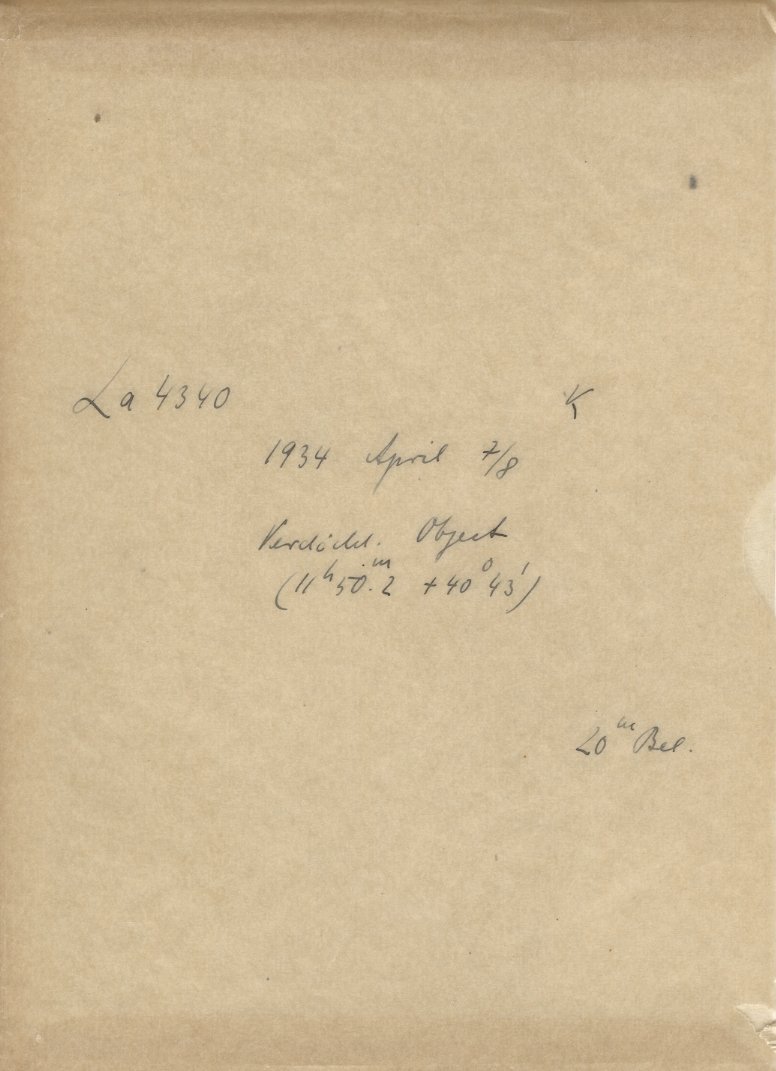 La 4340 K
1934 April 7/8
Verdächt. Object
(11ʰ50ᵐ.2 +40°43')
20ᵐ Bel.